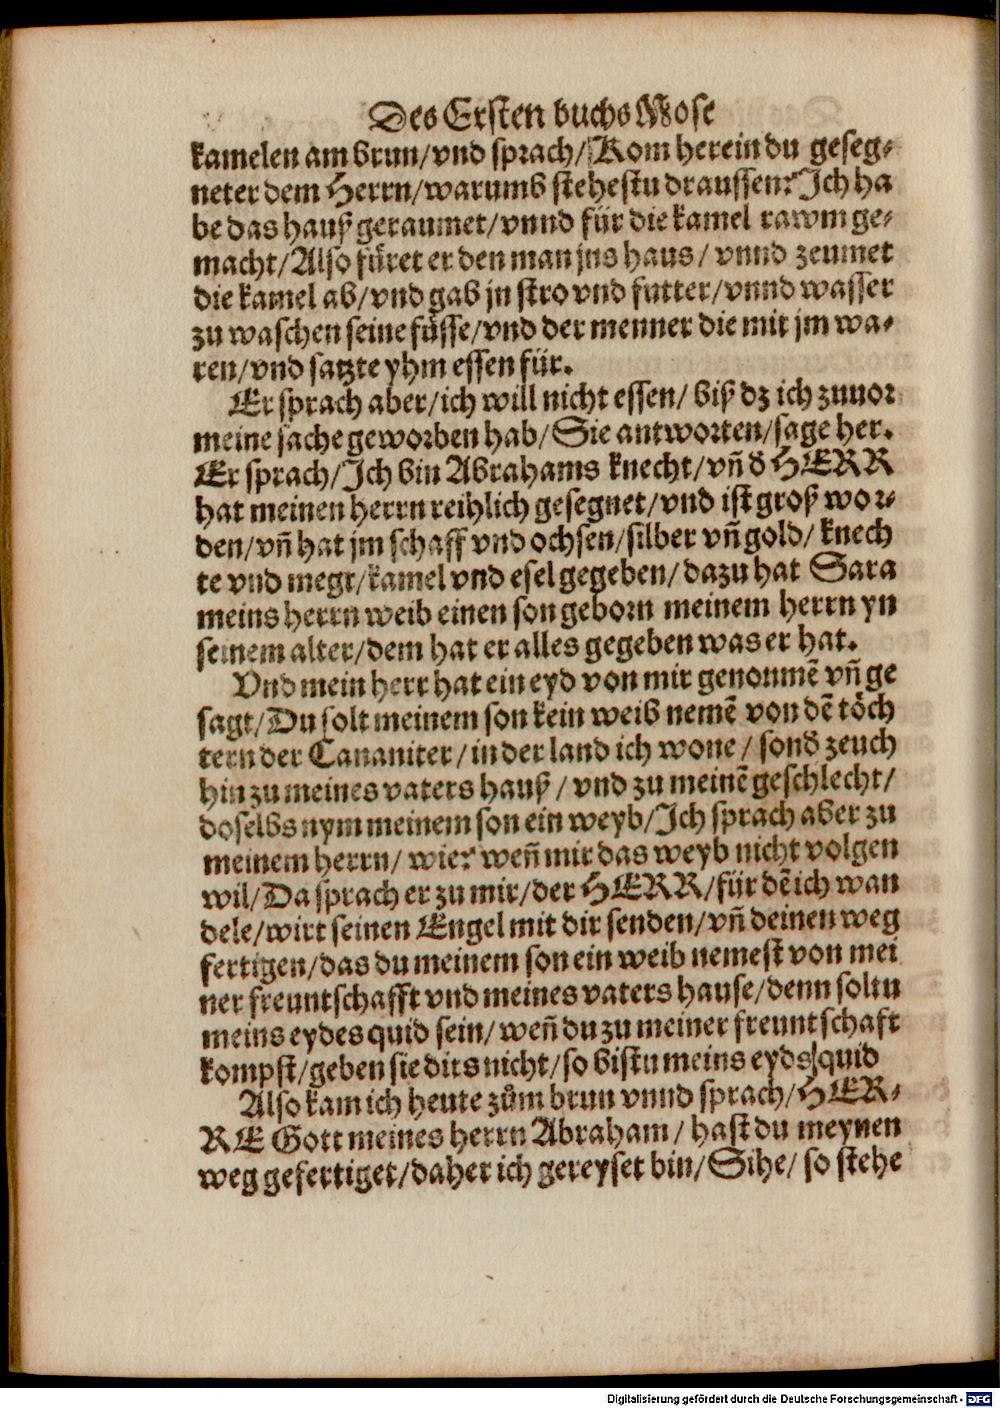 Des Ersten buchs Mose
kamelen am brun/vnd sprach/Kom herein du geseg-
neter dem Herrn/warumb stehestu draussen? Ich ha
be das hauß geraumet/vnnd für die kamel rawm ge-
macht/Also füret er den man jns haus/ vnnd zeumet
die kamel ab/vnd gab jn stro vnd futter/vnnd wasser
zu waschen seine füsse/vnd der menner die mit jm wa-
ren/vnd satzte yhm essen für.
Er sprach aber/ich will nicht essen/ biß dz ich zuuor
meine sache geworben hab/Sie antworten/sage her.
Er sprach/Ich bin Abrahams knecht/vñ d̕ HERR
hat meinen herrn reihlich gesegnet/vnd ist groß wor-
den/vñ hat jm schaff vnd ochsen/silber vñ gold/ knech
te vnd megt/kamel vnd esel gegeben/dazu hat Sara
meins herrn weib einen son geborn meinem herrn yn
seinem alter/dem hat er alles gegeben was er hat.
Vnd mein herr hat ein eyd von mir genommē vñ ge
sagt/Du solt meinem son kein weib nemē von dē töch
tern der Cananiter/in der land ich wone/ sond̕ zeuch
hin zu meines vaters hauß/ vnd zu meinē geschlecht/
doselbs nym meinem son ein weyb/Ich sprach aber zu
meinem herrn/ wie? weñ mir das weyb nicht volgen
wil/Da sprach er zu mir/der HERR/für dē ich wan
dele/wirt seinen Engel mit dir senden/vñ deinen weg
fertigen/das du meinem son ein weib nemest von mei
ner freuntschafft vnd meines vaters hause/denn soltu
meins eydes quid sein/weñ du zu meiner freuntschaft
kompst/geben sie dirs nicht/so bistu meins eyds quid
Also kam ich heute zům brun vnnd sprach/HER-
RE Gott meines herrn Abraham/ hast du meynen
weg gefertiget/daher ich gereyset bin/Sihe/ so stehe
Digitalisierung gefördert durch die Deutsche Forschungsgemeinschaft - DFG